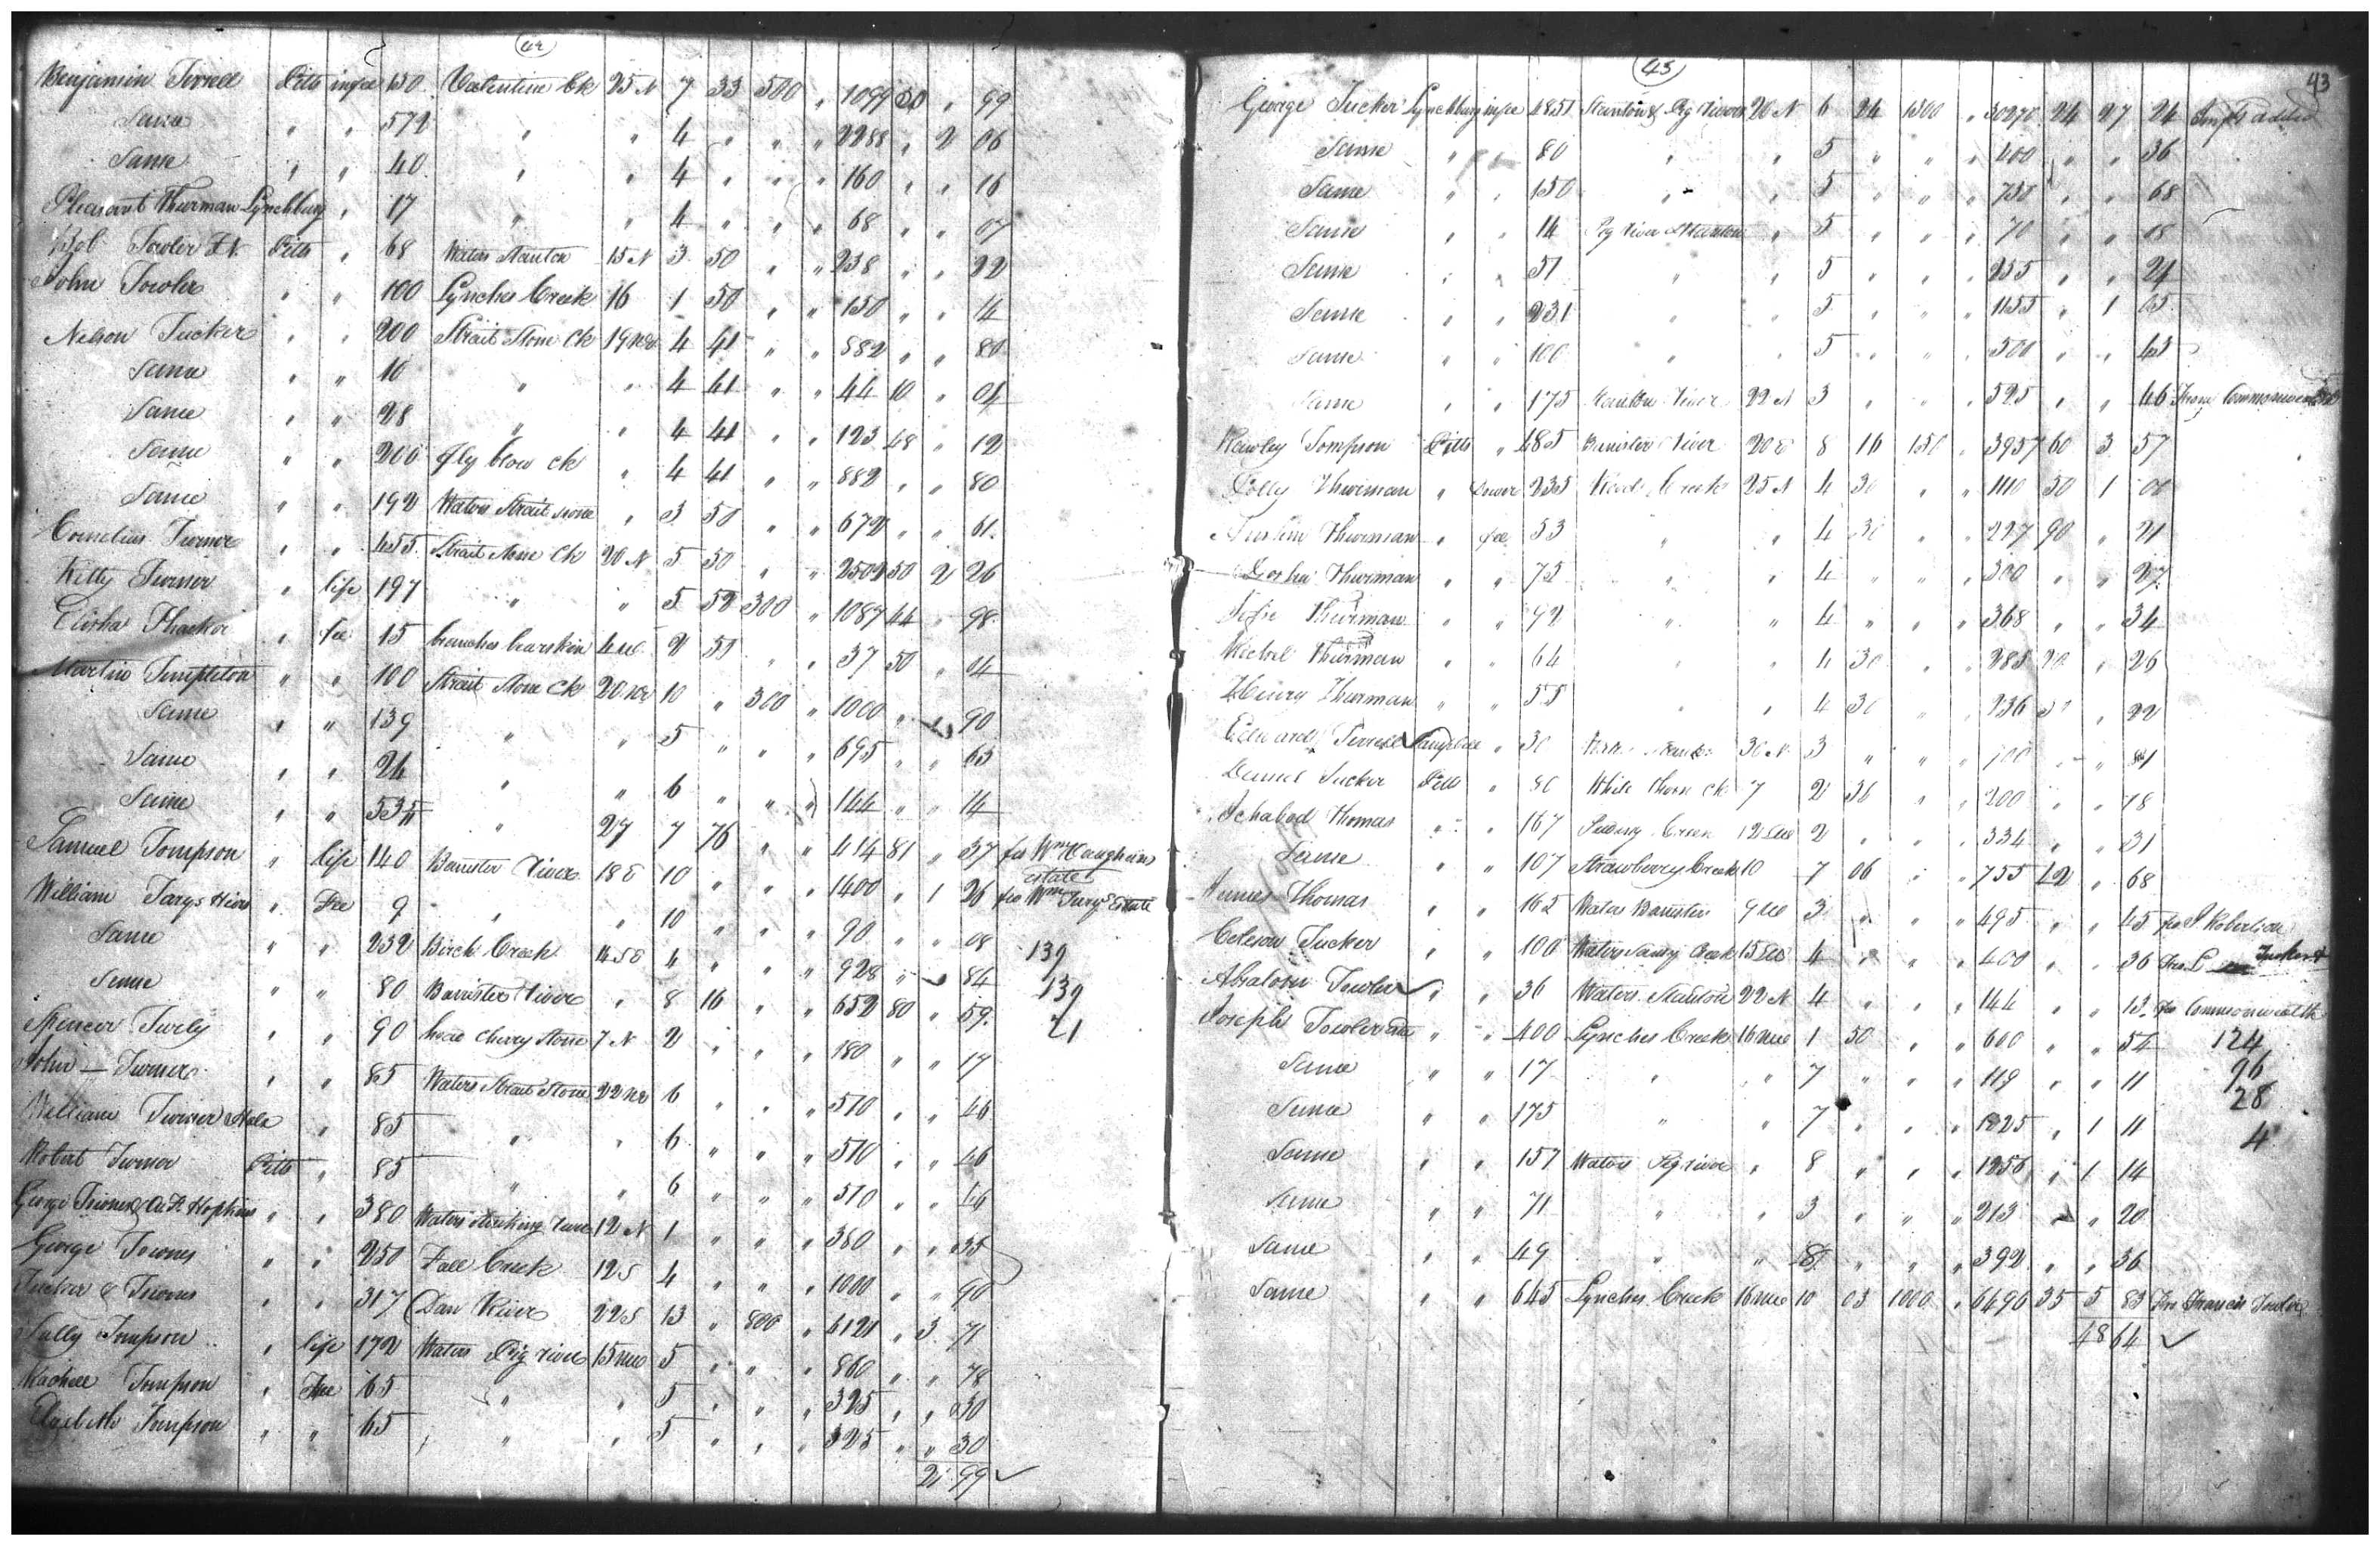 42
Benjamin Terrell Pitts in fee 150 Valentine Ck 25 N 7 33 500 " 1099 50 " 99
Same " " 572 " " 4 " " " 2288 " 2 06
Same " " 40 " " 4 " " " 160 " " 16
Pleasant Thurman Lynchburg " 17 " " 4 " " " 68 " " 07
Towler Pitts " 68 Waters Stanton 15 N 3 50 " " 238 " " 22
John Towler " " 100 Lynches Creek 16 1 50 " " 150 " " 14
Nelson Tucker " " 200 Strait Stone Ck 19 4 41 " " 882 " " 80
Same " " 10 " " 4 41 " " 44 10 " 04
Same " " 28 " " 4 41 " " 123 48 " 12
Same " " 200 Fly blow Ck " 4 41 " " 882 " " 80
Same " " 192 Waters Strait stone " 3 50 " " 672 " " 61
Cornelius Turner " " 455 Strait Stone Ck 20 N 5 50 " " 2502 50 2 26
Kitty Turner " life 197 " " 5 52 300 " 1087 44 " 98
Elisha Thacker " fee 15 branches bearskin 4 2 50 " " 37 50 " 04
Martin Templeton " " 100 Strait Stone Ck 20 10 " 300 " 1000 " " 90
Same " " 139 " " 5 " " " 695 " " 63
Same " " 24 " " 6 " " " 144 " " 14
Same " " 53 " 27 7 76 " " 414 81 " 37 fro Wm estate
Samuel Tompson " life 140 Banister River 18 E 10 " " " 1400 " 1 26 fro Wm Estate
William Heirs " Fee 9 " " 10 " " " 90 " " 08
Same " " 232 Birch Creek 14 SE 4 " " " 928 " " 84 139
Same " " 80 Banister River " 8 16 " " 652 80 " 59 139
Spencer " " 90 head Cherry Stone 7 N 2 " " " 180 " " 17 21
John Turner " " 85 Waters Strait Stone 22 6 " " " 510 " " 46
William Turner Hala " 85 " " 6 " " " 510 " " 46
Robert Turner Pitts " 85 " " 6 " " " 510 " " 46
George Townes & Hopkins " " 380 Waters 12 N 1 " " " 380 " " 35
George Townes " " 250 Fall Creek 12 S 4 " " " 1000 " " 90
Tucker & Townes " " 317 Dan River 22 S 13 " 800 " 4121 " 3 71
Sally Tompson " life 172 Waters Pig river 15 5 " " " 860 " " 78
Tompson " Fee 65 " " 5 " " " 325 " " 30
Elizabeth Tompson " " 65 " " 5 " " " 325 " " 30
21 99
43
43
George Tucker Lynchburg in fee 4851 Stanton & Pig rivers 20 N 6 24 1300 " 30270 24 27 24 added
Same " " 80 " " 5 " " " 400 " " 36
Same " " 150 " " 5 " " " 750 " " 68
Same " " 14 Pig river & Stanton " 5 " " " 70 " " 08
Same " " 51 " " 5 " " " 255 " " 24
Same " " 231 " " 5 " " " 1155 " 1 05
Same " " 100 " " 5 " " " 500 " " 45
Same " " 175 Stanton River 22 N 3 " " " 525 " " 46 From Commonwealth
Tompson Pitts " 485 Banister River 20 E 8 16 150 " 3957 60 3 57
Polly Thurman " 235 Creek 25 N 4 30 " " 1110 50 1 00
Thurman " fee 53 " " 4 30 " " 227 90 " 21
Thurman " " 75 " " 4 " " " 300 " " 27
Thurman " " 92 " " 4 " " " 368 " " 34
Thurman " " 64 " " 4 30 " " 285 20 " 26
Henry Thurman " " 55 " " 4 30 " " 236 " 22
Edward Terrell " 30 30 N 3
Daniel Tucker Pitts " 80 White thorn Ck 7 2 30 " " 200 " " 18
Ichabod Thomas " " 167 Creek 12 2 " " " 334 " " 31
Same " " 107 Strawberry Creek 10 7 06 " " 755 42 " 68
James Thomas " " 165 Waters Banister 9 3 " " " 495 " " 45 fro Robertson
Coleson Tucker " " 100 Waters Sandy Creek 15 4 " " " 400 " " 36 Tucker
Absalom Towler " " 36 Waters Stanton 22 N 4 " " " 144 " " 13 fro Commonwealth
Joseph Towler " " 400 Lynches Creek 16 1 50 " " 600 " " 54 124
Same " " 17 " " 7 " " " 119 " " 11 96
Same " " 175 " " 7 " " " 1225 " 1 11 28
Same " " 157 Waters Pig river " 8 " " " 1256 " 1 14 4
Same " " 71 " " 3 " " " 213 " " 20
Same " " 49 " " 8 " " " 392 " " 36
Same " " 645 Lynches Creek 16 10 03 1000 " 6496 35 5 85 Fro Francis Towler
48 64